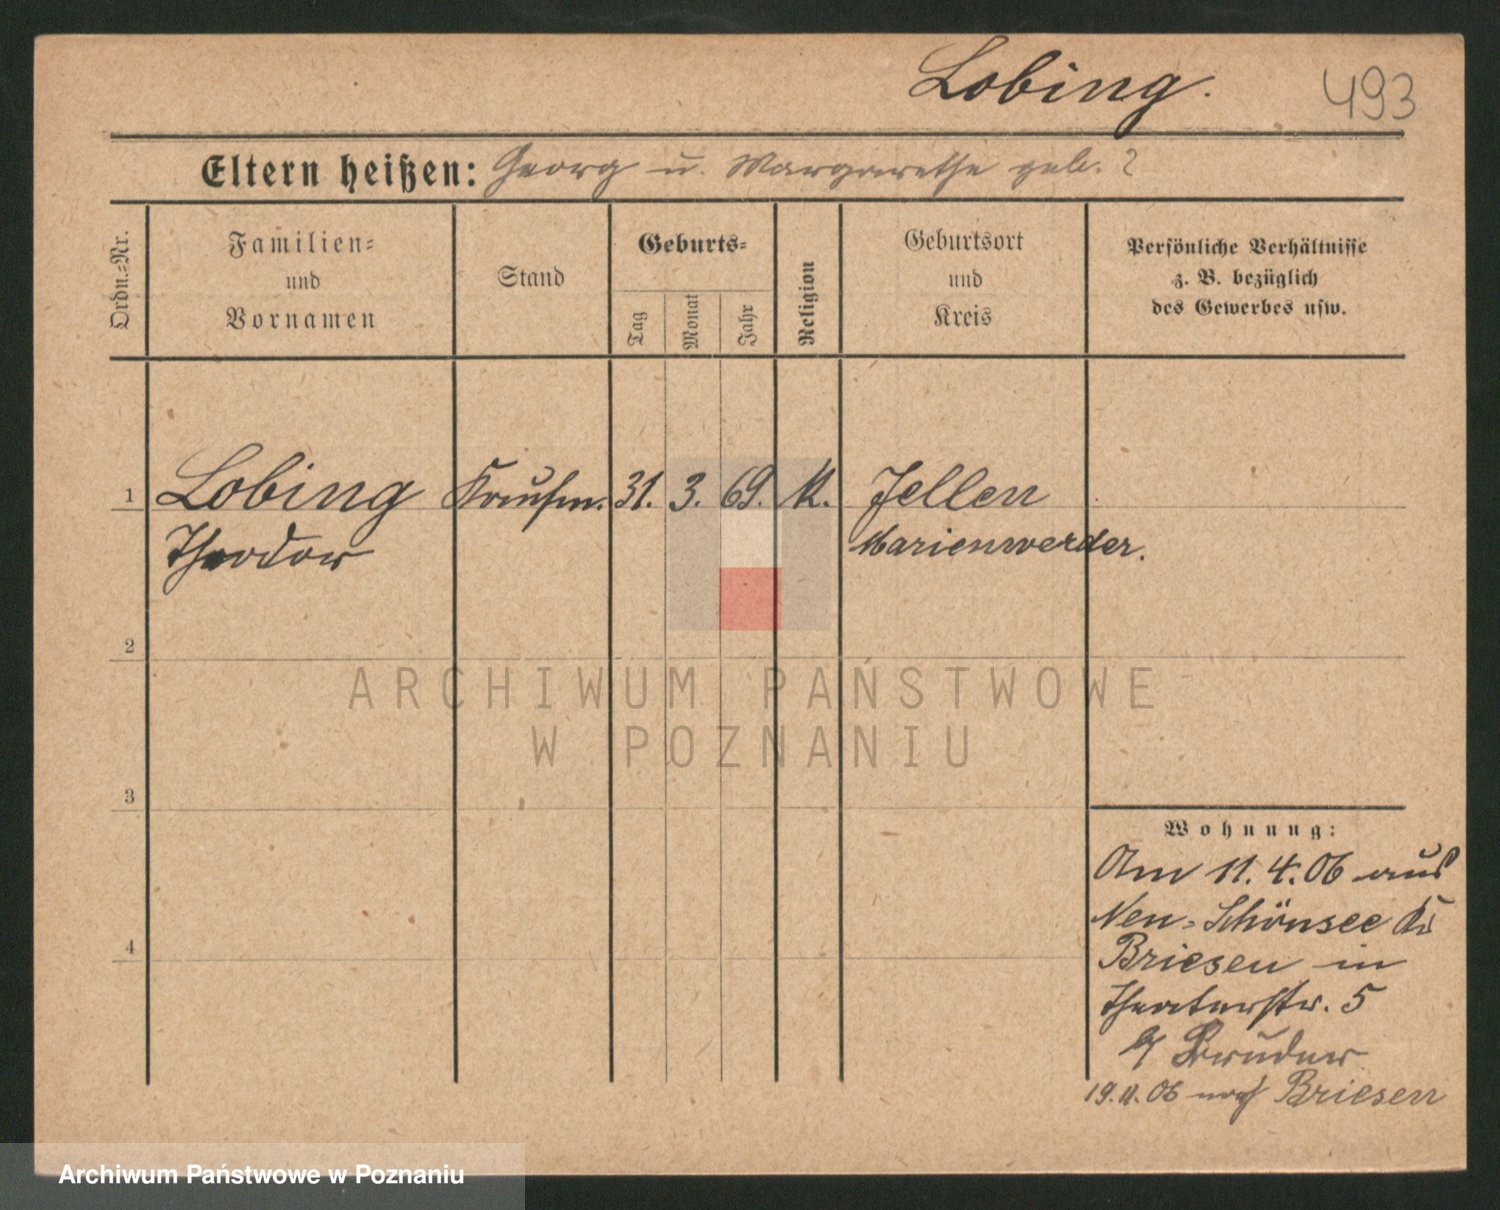 Lobing.
493
Eltern heißen: Georg u. Margarethe geb. ?
Ordn.-Nr.
Familien-
und
Vornamen
Stand
Geburts-
Tag
Monat
Jahr
Religion
Geburtsort
und
Kreis
Persönliche Verhältnisse
z. B. bezüglich
des Gewerbes usw.
1 Lobing Kaufm. 31. 3. 69. K. Jellen
Theodor Marienwerder.
2
3
4
Wohnung:
Am 11.4.06 aus
Neu-Schönsee Kr
Briesen in
Theaterstr. 5
b/ Bruder
19.11.06 nach Briesen
ARCHIWUM PAŃSTWOWE
W POZNANIU
Archiwum Państwowe w Poznaniu